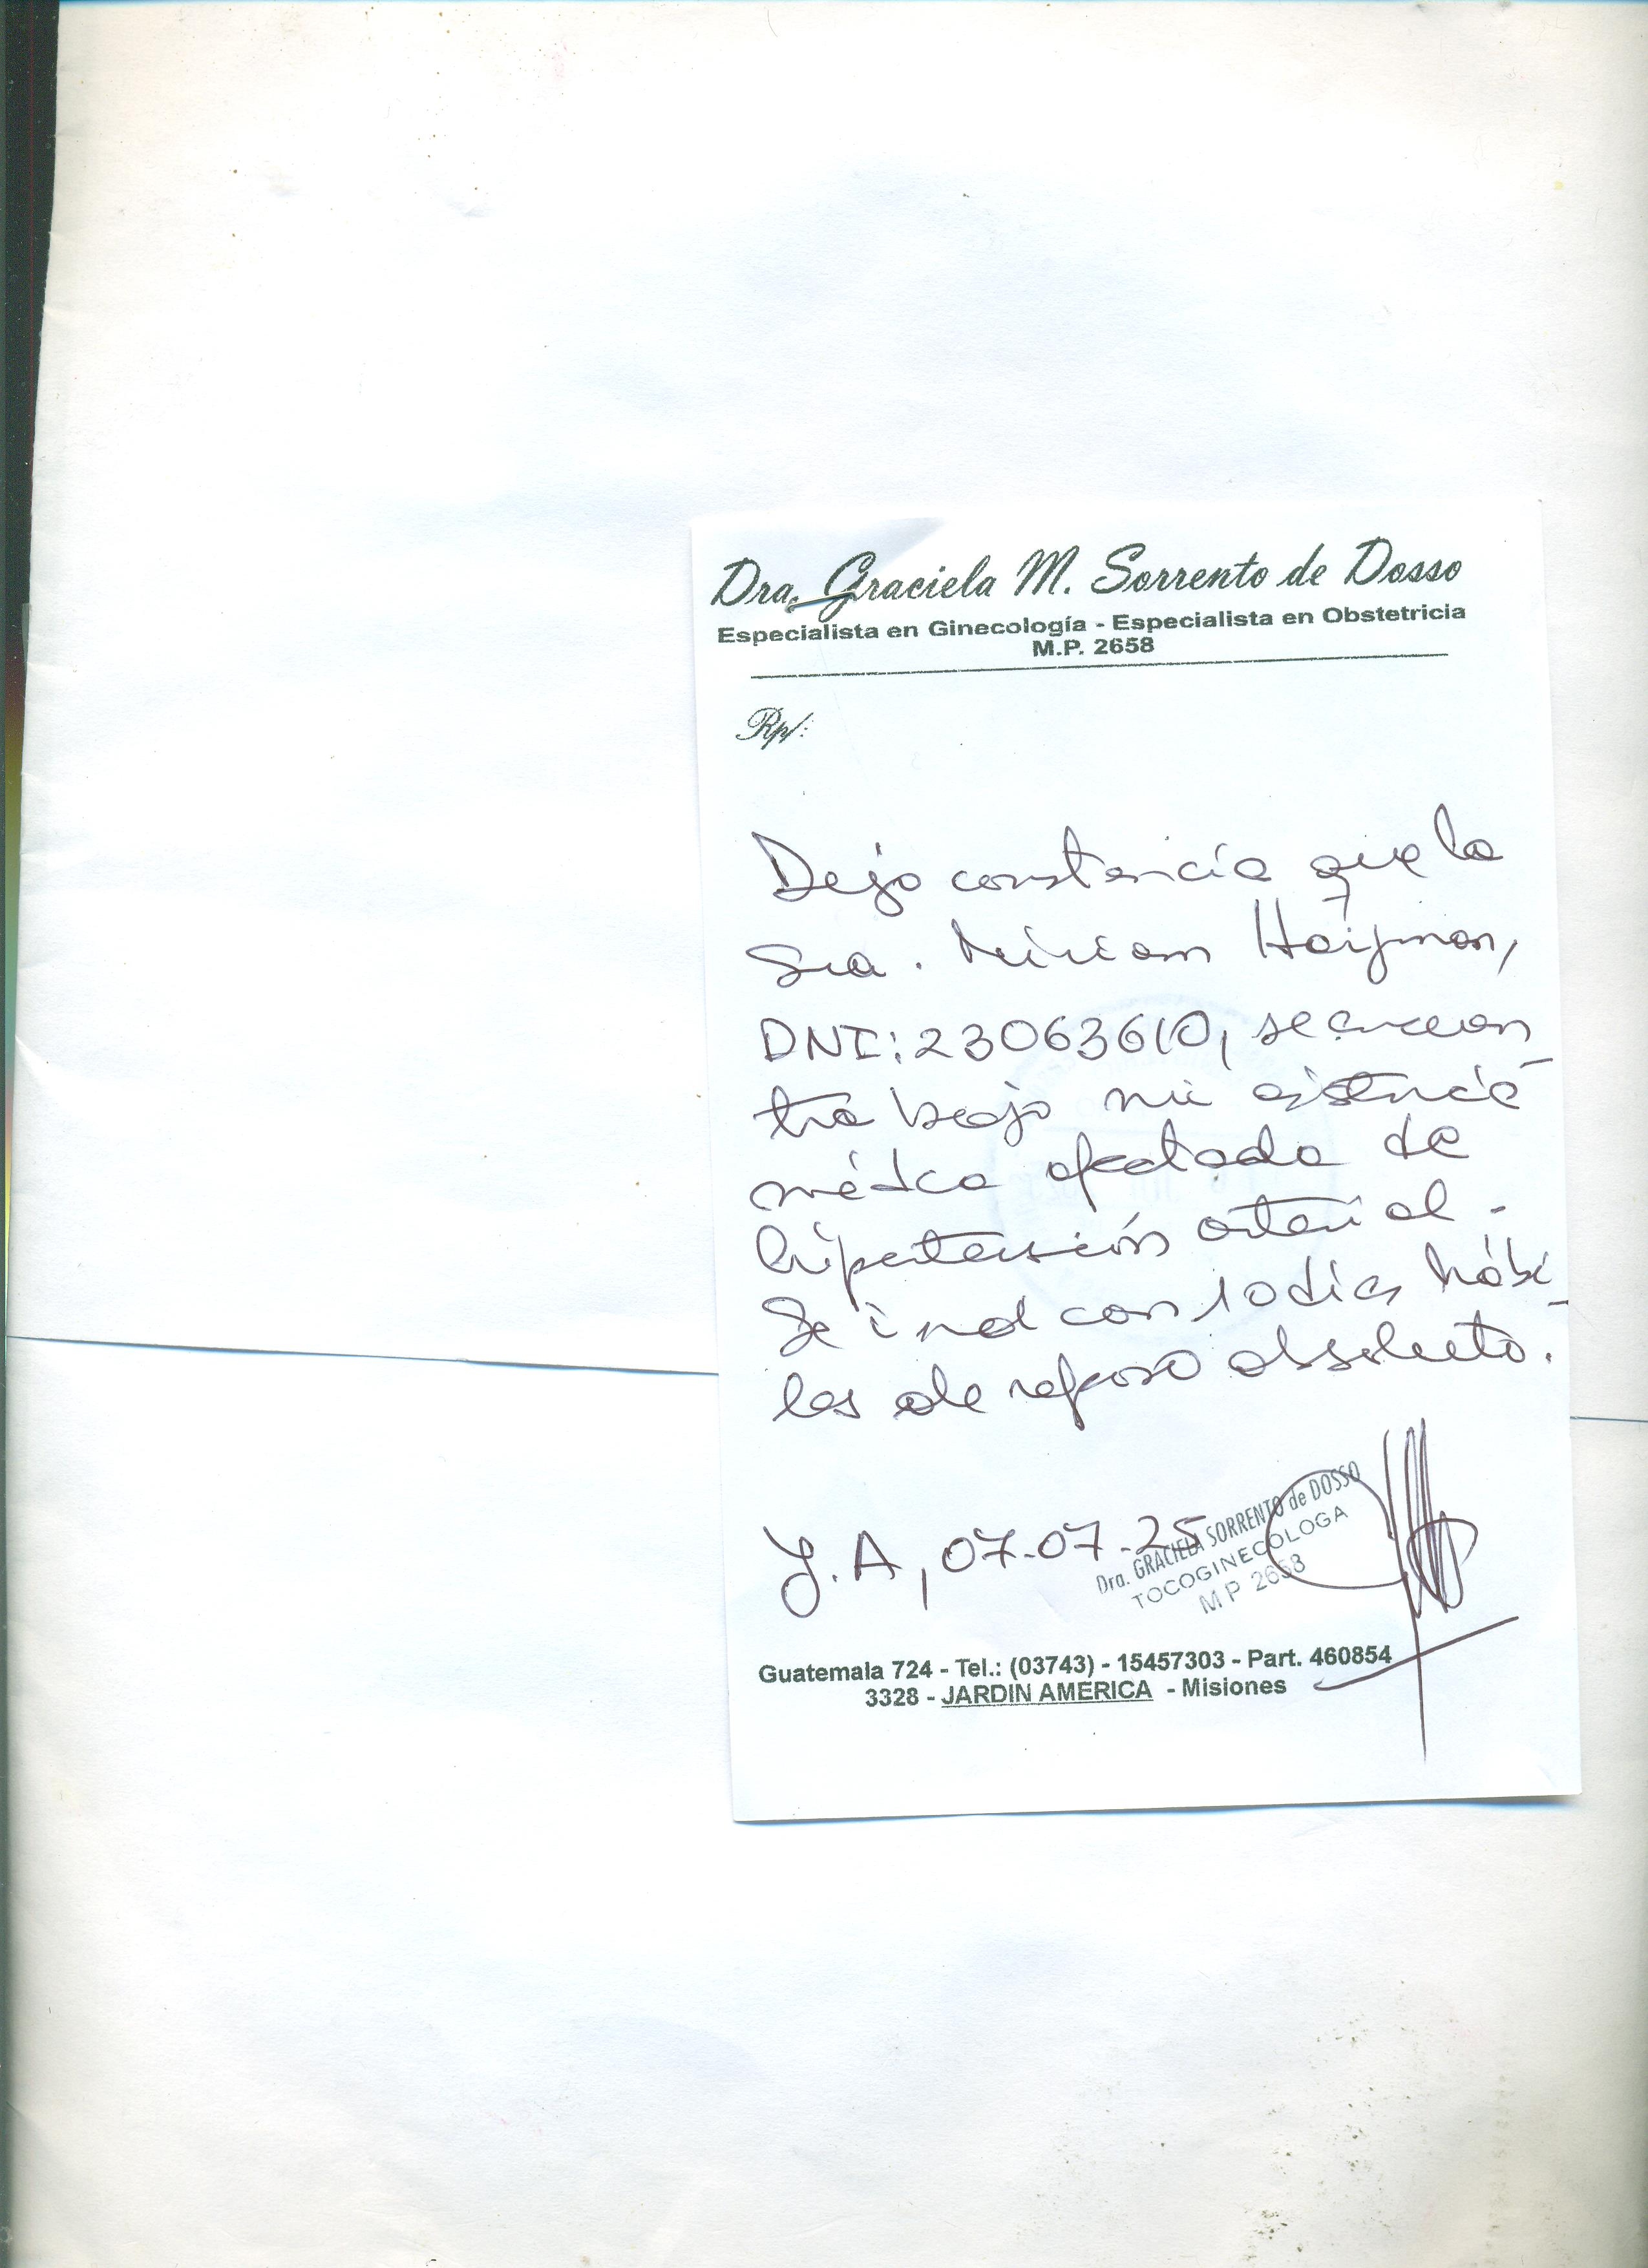 Dra. Graciela M. Sorrento de Dosso
Especialista en Ginecología - Especialista en Obstetricia
M.P. 2658
Rp/:
Dejo constancia que la
Sra. Miriam Hoijman,
DNI: 23063610, se encuen
tra bajo mi asistencia
médica afectada de
hipertensión arterial.
Se indican 10 días hábi
les de reposo absoluto.
J.A, 07-07-25
Dra. GRACIELA SORRENTO de DOSSO
TOCOGINECOLOGA
MP 2658
Guatemala 724 - Tel.: (03743) - 15457303 - Part. 460854
3328 - JARDIN AMERICA - Misiones